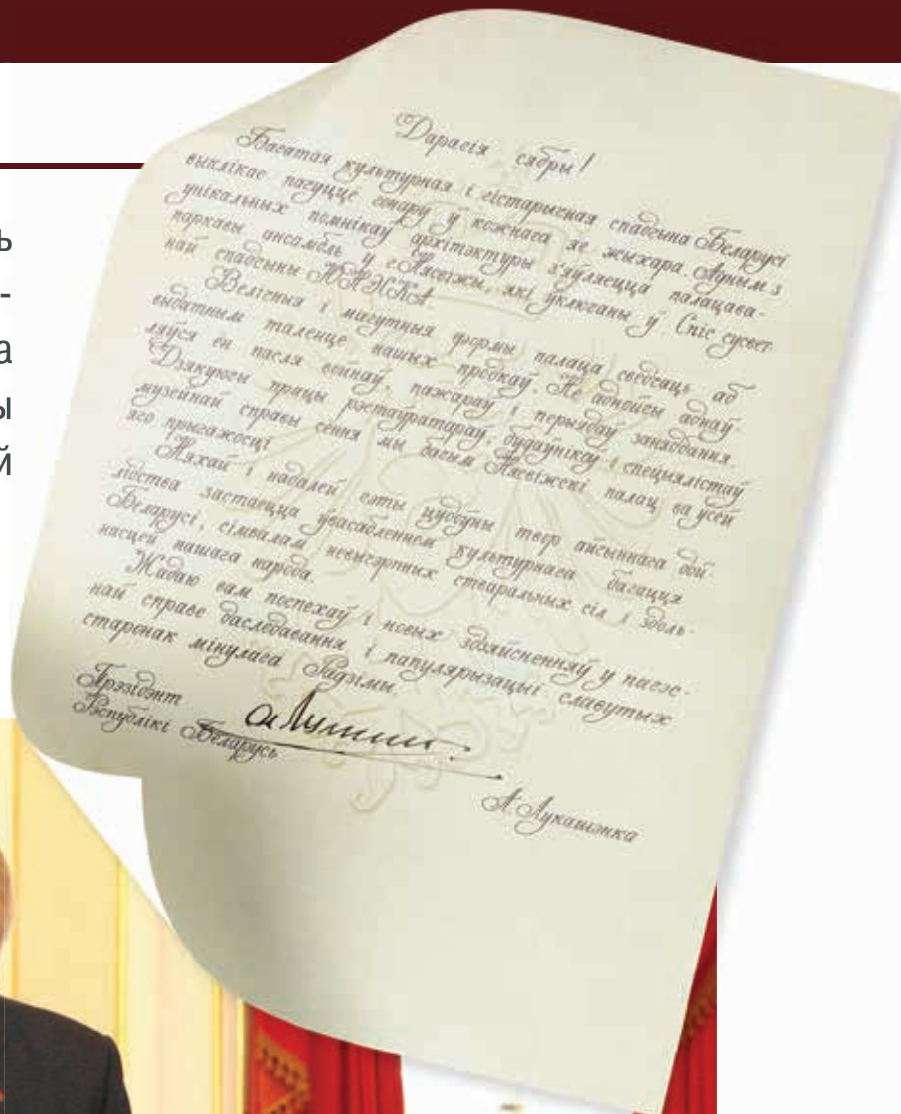 ь
-
а
ы
й
Дарагія сябры!
Багатая культурная і гістарычная спадчына Беларусі
выклікае пачуццё гонару ў кожнага яе жыхара. Адным з
унікальных помнікаў архітэктуры з'яўляецца палацава-
паркавы ансамбль у г.Нясвіжы, які ўключаны ў Спіс сусвет-
най спадчыны ЮНЕСКА.
Велічныя і магутныя формы палаца сведчаць аб
выдатным таленце нашых продкаў. Не аднойчы аднаў-
ляўся ён пасля войнаў, пажараў і перыядаў занядбання.
Дзякуючы працы рэстаўратараў, будаўнікоў і спецыялістаў
музейнай справы сёння мы бачым Нясвіжскі палац ва ўсёй
яго прыгажосці.
Няхай і надалей гэты цудоўны твор айчыннага дой-
лідства застаецца ўвасабленнем культурнага багацця
Беларусі, сімвалам невычэрпных стваральных сіл і здоль-
насцей нашага народа.
Жадаю вам поспехаў і новых здзяйсненняў у пачэс-
най справе даследавання і папулярызацыі славутых
старонак мінулага Радзімы.
Прэзідэнт
Рэспублікі Беларусь
А.Лукашэнка